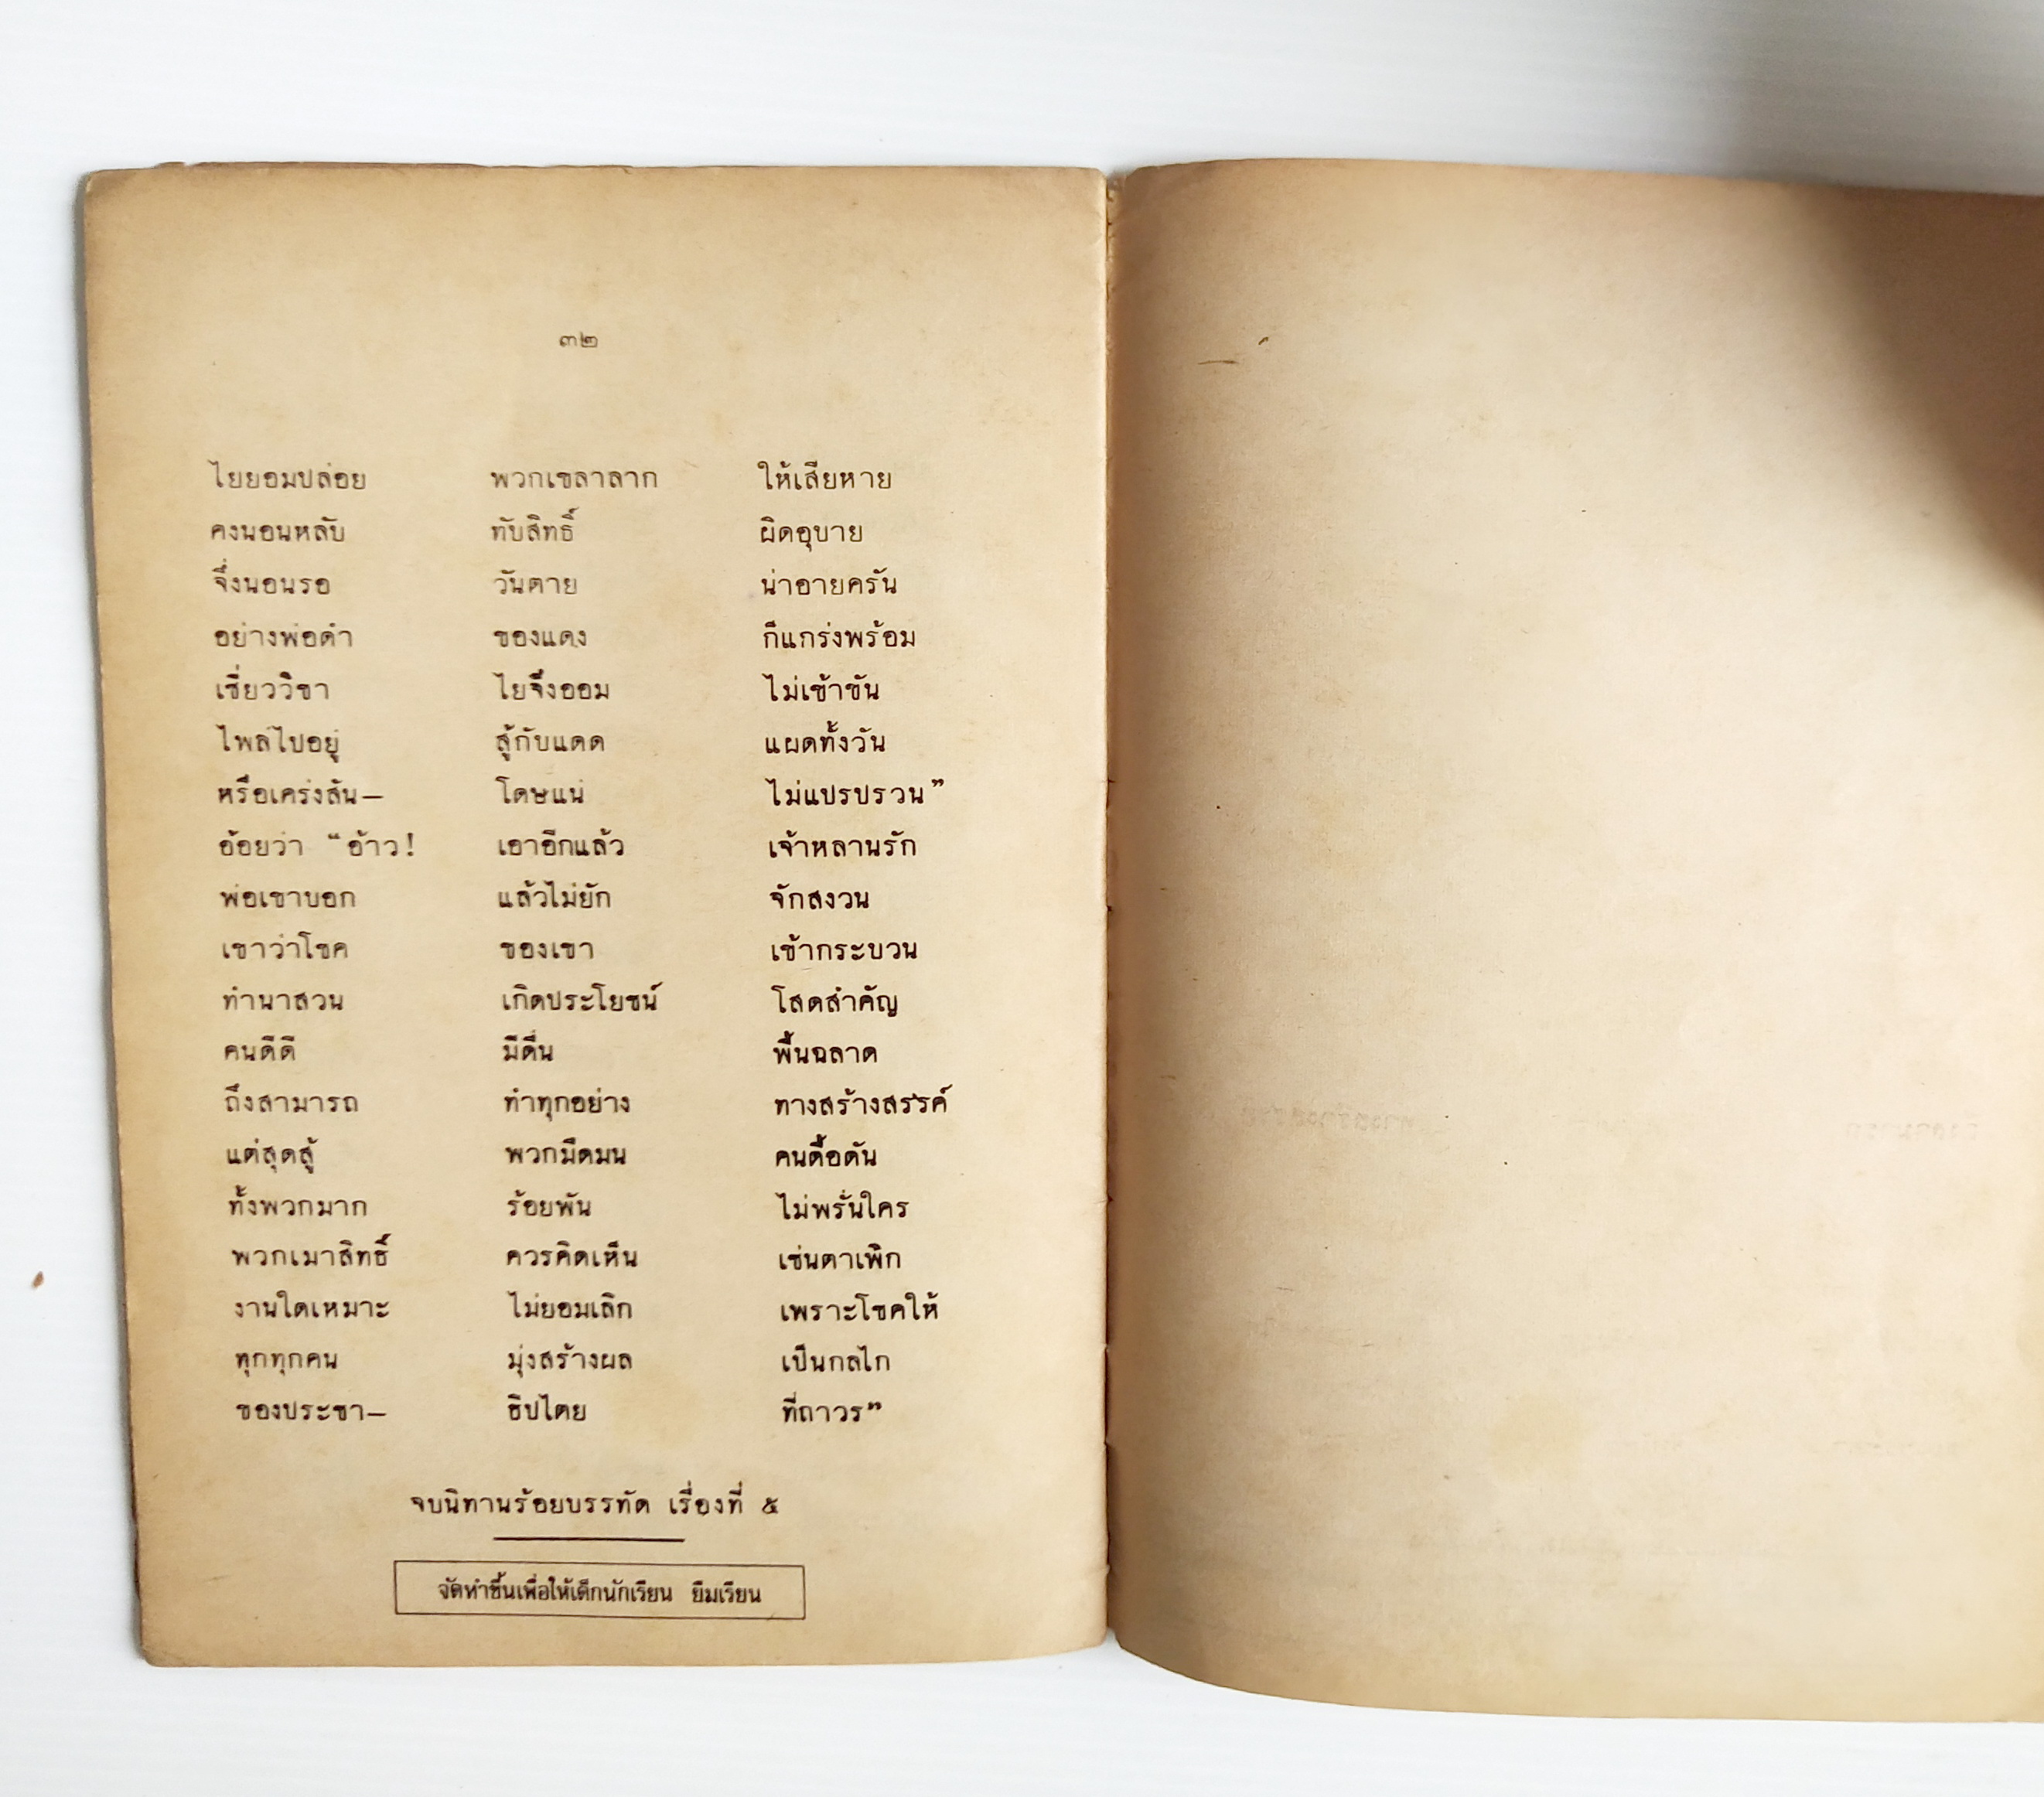 ๓๒
ไยยอมปล่อย พวกเขลาลาก ให้เสียหาย
คงนอนหลับ ทับสิทธิ์ ผิดอุบาย
จึ่งนอนรอ วันตาย น่าอายครัน
อย่างพ่อดำ ของแดง ก็แกร่งพร้อม
เชี่ยววิชา ไยจึงออม ไม่เข้าขัน
ไพล่ไปอยู่ สู้กับแดด แผดทั้งวัน
หรือเคร่งสัน– โดษแน่ ไม่แปรปรวน”
อ้อยว่า “อ้าว! เอาอีกแล้ว เจ้าหลานรัก
พ่อเขาบอก แล้วไม่ยัก จักสงวน
เขาว่าโชค ของเขา เข้ากระบวน
ทำนาสวน เกิดประโยชน์ โสดสำคัญ
คนดีดี มีดื่น พื้นฉลาด
ถึงสามารถ ทำทุกอย่าง ทางสร้างสรรค์
แต่สุดสู้ พวกมืดมน คนดื้อดัน
ทั้งพวกมาก ร้อยพัน ไม่พรั่นใคร
พวกเมาสิทธิ์ ควรคิดเห็น เช่นตาเพิก
งานใดเหมาะ ไม่ยอมเลิก เพราะโชคให้
ทุกทุกคน มุ่งสร้างผล เป็นกลไก
ของประชา– ธิปไตย ที่ถาวร”
จบนิทานร้อยบรรทัด เรื่องที่ ๕
จัดทำขึ้นเพื่อให้เด็กนักเรียน ยืมเรียน